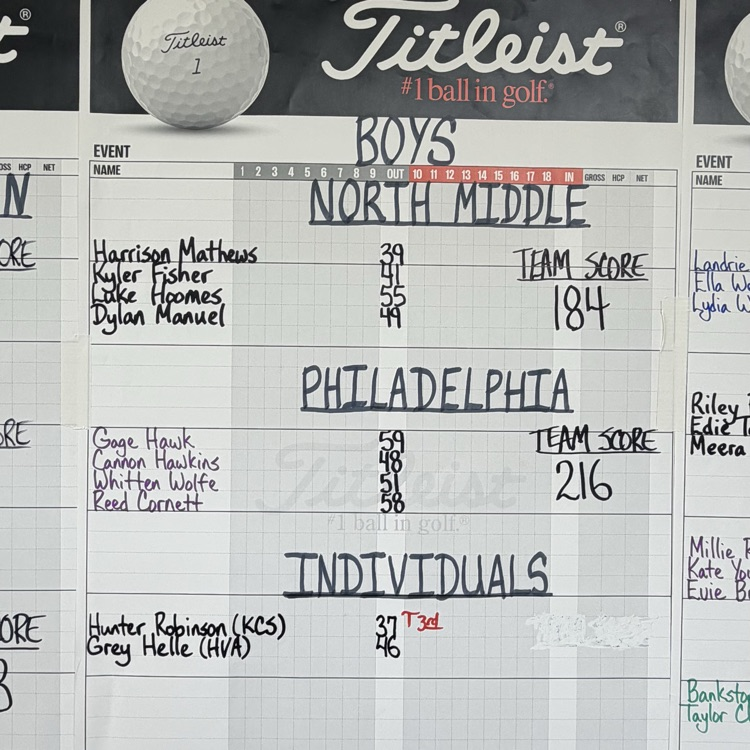 Titleist®
1
Titleist®
#1 ball in golf.®
BOYS
EVENT
NAME 1 2 3 4 5 6 7 8 9 OUT 10 11 12 13 14 15 16 17 18 IN GROSS HCP NET
NORTH MIDDLE
Harrison Mathews 39
Kyler Fisher 41
Luke Hoomes 55
Dylan Manuel 49
TEAM SCORE
184
PHILADELPHIA
Gage Hawk 59
Cannon Hawkins 48
Whitten Wolfe 51
Reed Cornett 58
TEAM SCORE
216
Titleist
#1 ball in golf.®
INDIVIDUALS
Hunter Robinson (KCS) 37 T 3rd
Grey Helle (HVA) 46
HCP NET
EVENT
NAME
Landrie
Ella
Lydia
Riley
Edie
Meera
Millie
Kate
Evie
Taylor